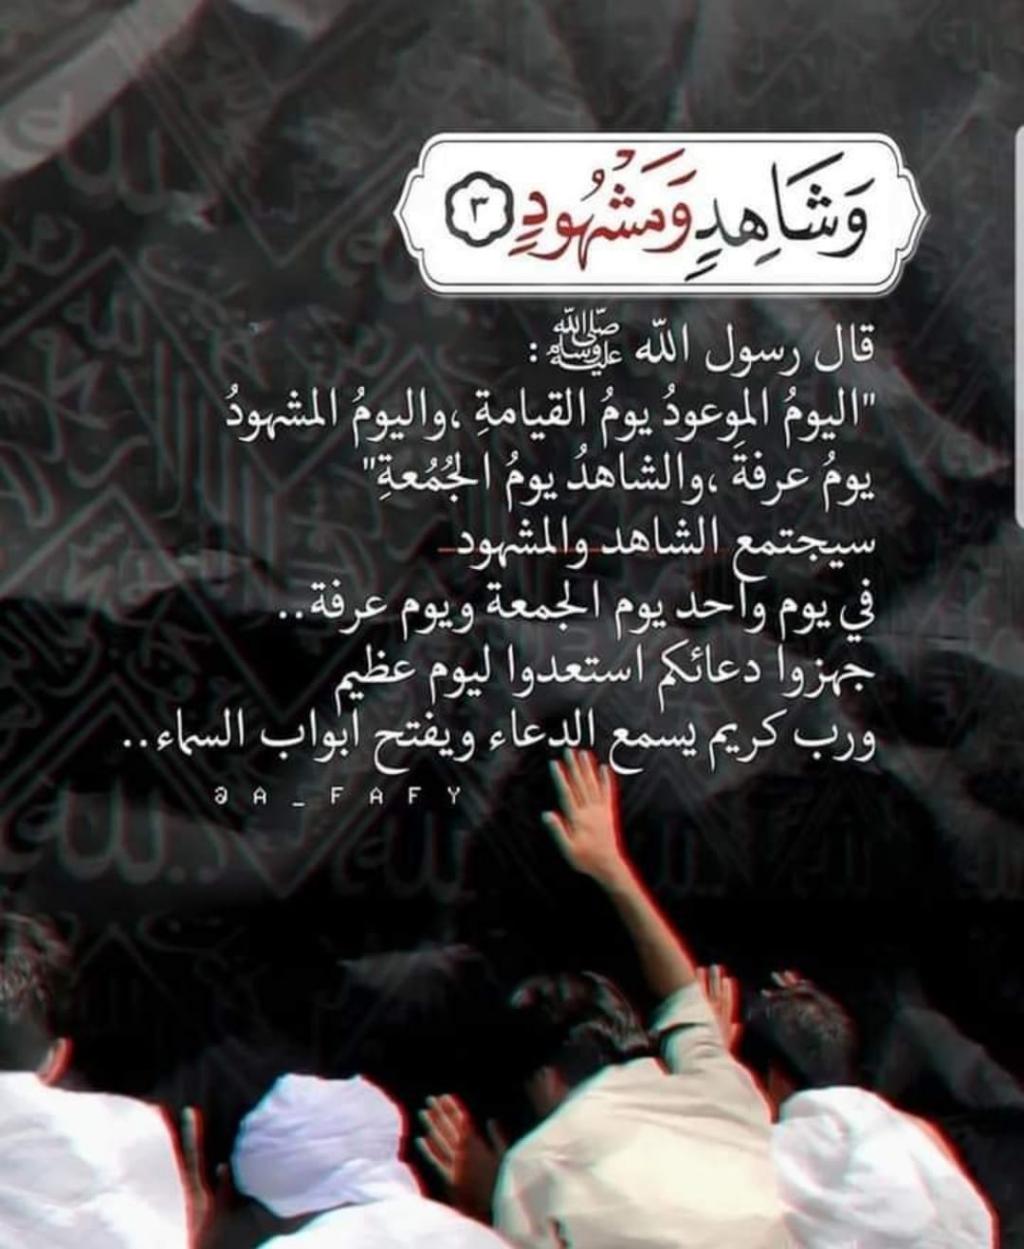 وَشَاهِدٍ وَمَشْهُودٍ ٣
قال رسول الله ﷺ:
"اليومُ الموعودُ يومُ القيامةِ ،واليومُ المشهودُ
يومُ عرفةَ ،والشاهدُ يومُ الجُمُعةِ"
سيجتمع الشاهد والمشهود
في يوم واحد يوم الجمعة ويوم عرفة..
جهزوا دعائكم استعدوا ليوم عظيم
ورب كريم يسمع الدعاء ويفتح ابواب السماء..
A_FAFY